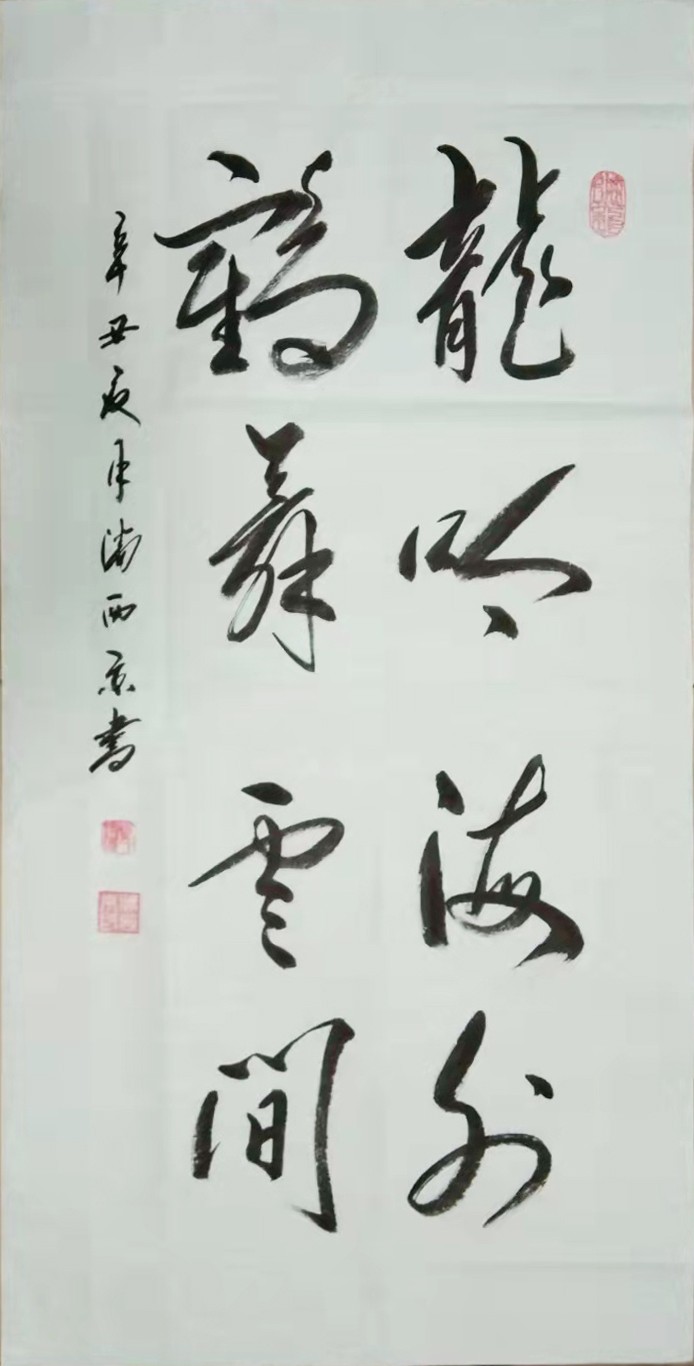 龍吟海外
鶴舞雲間
辛丑夏月 西京書